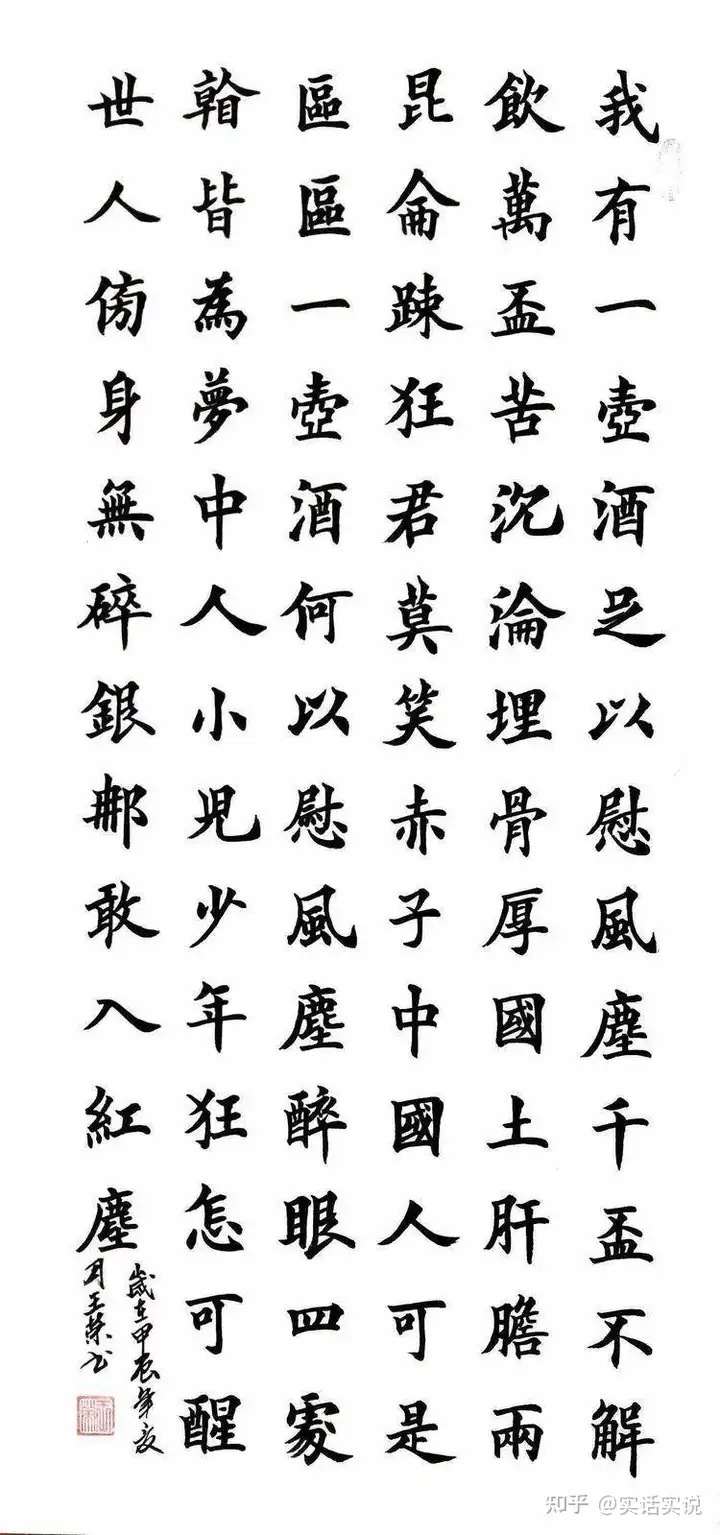 我有一壺酒足以慰風塵千盃不解
飲萬盃苦沉淪埋骨厚國土肝膽兩
昆侖踈狂君莫笑赤子中國人可是
區區一壺酒何以慰風塵醉眼四處
皆為夢中人小児少年狂怎可醒
世人傍身無碎銀那敢入紅塵
歲在甲辰年夏
月王荣书
知乎 @实话实说